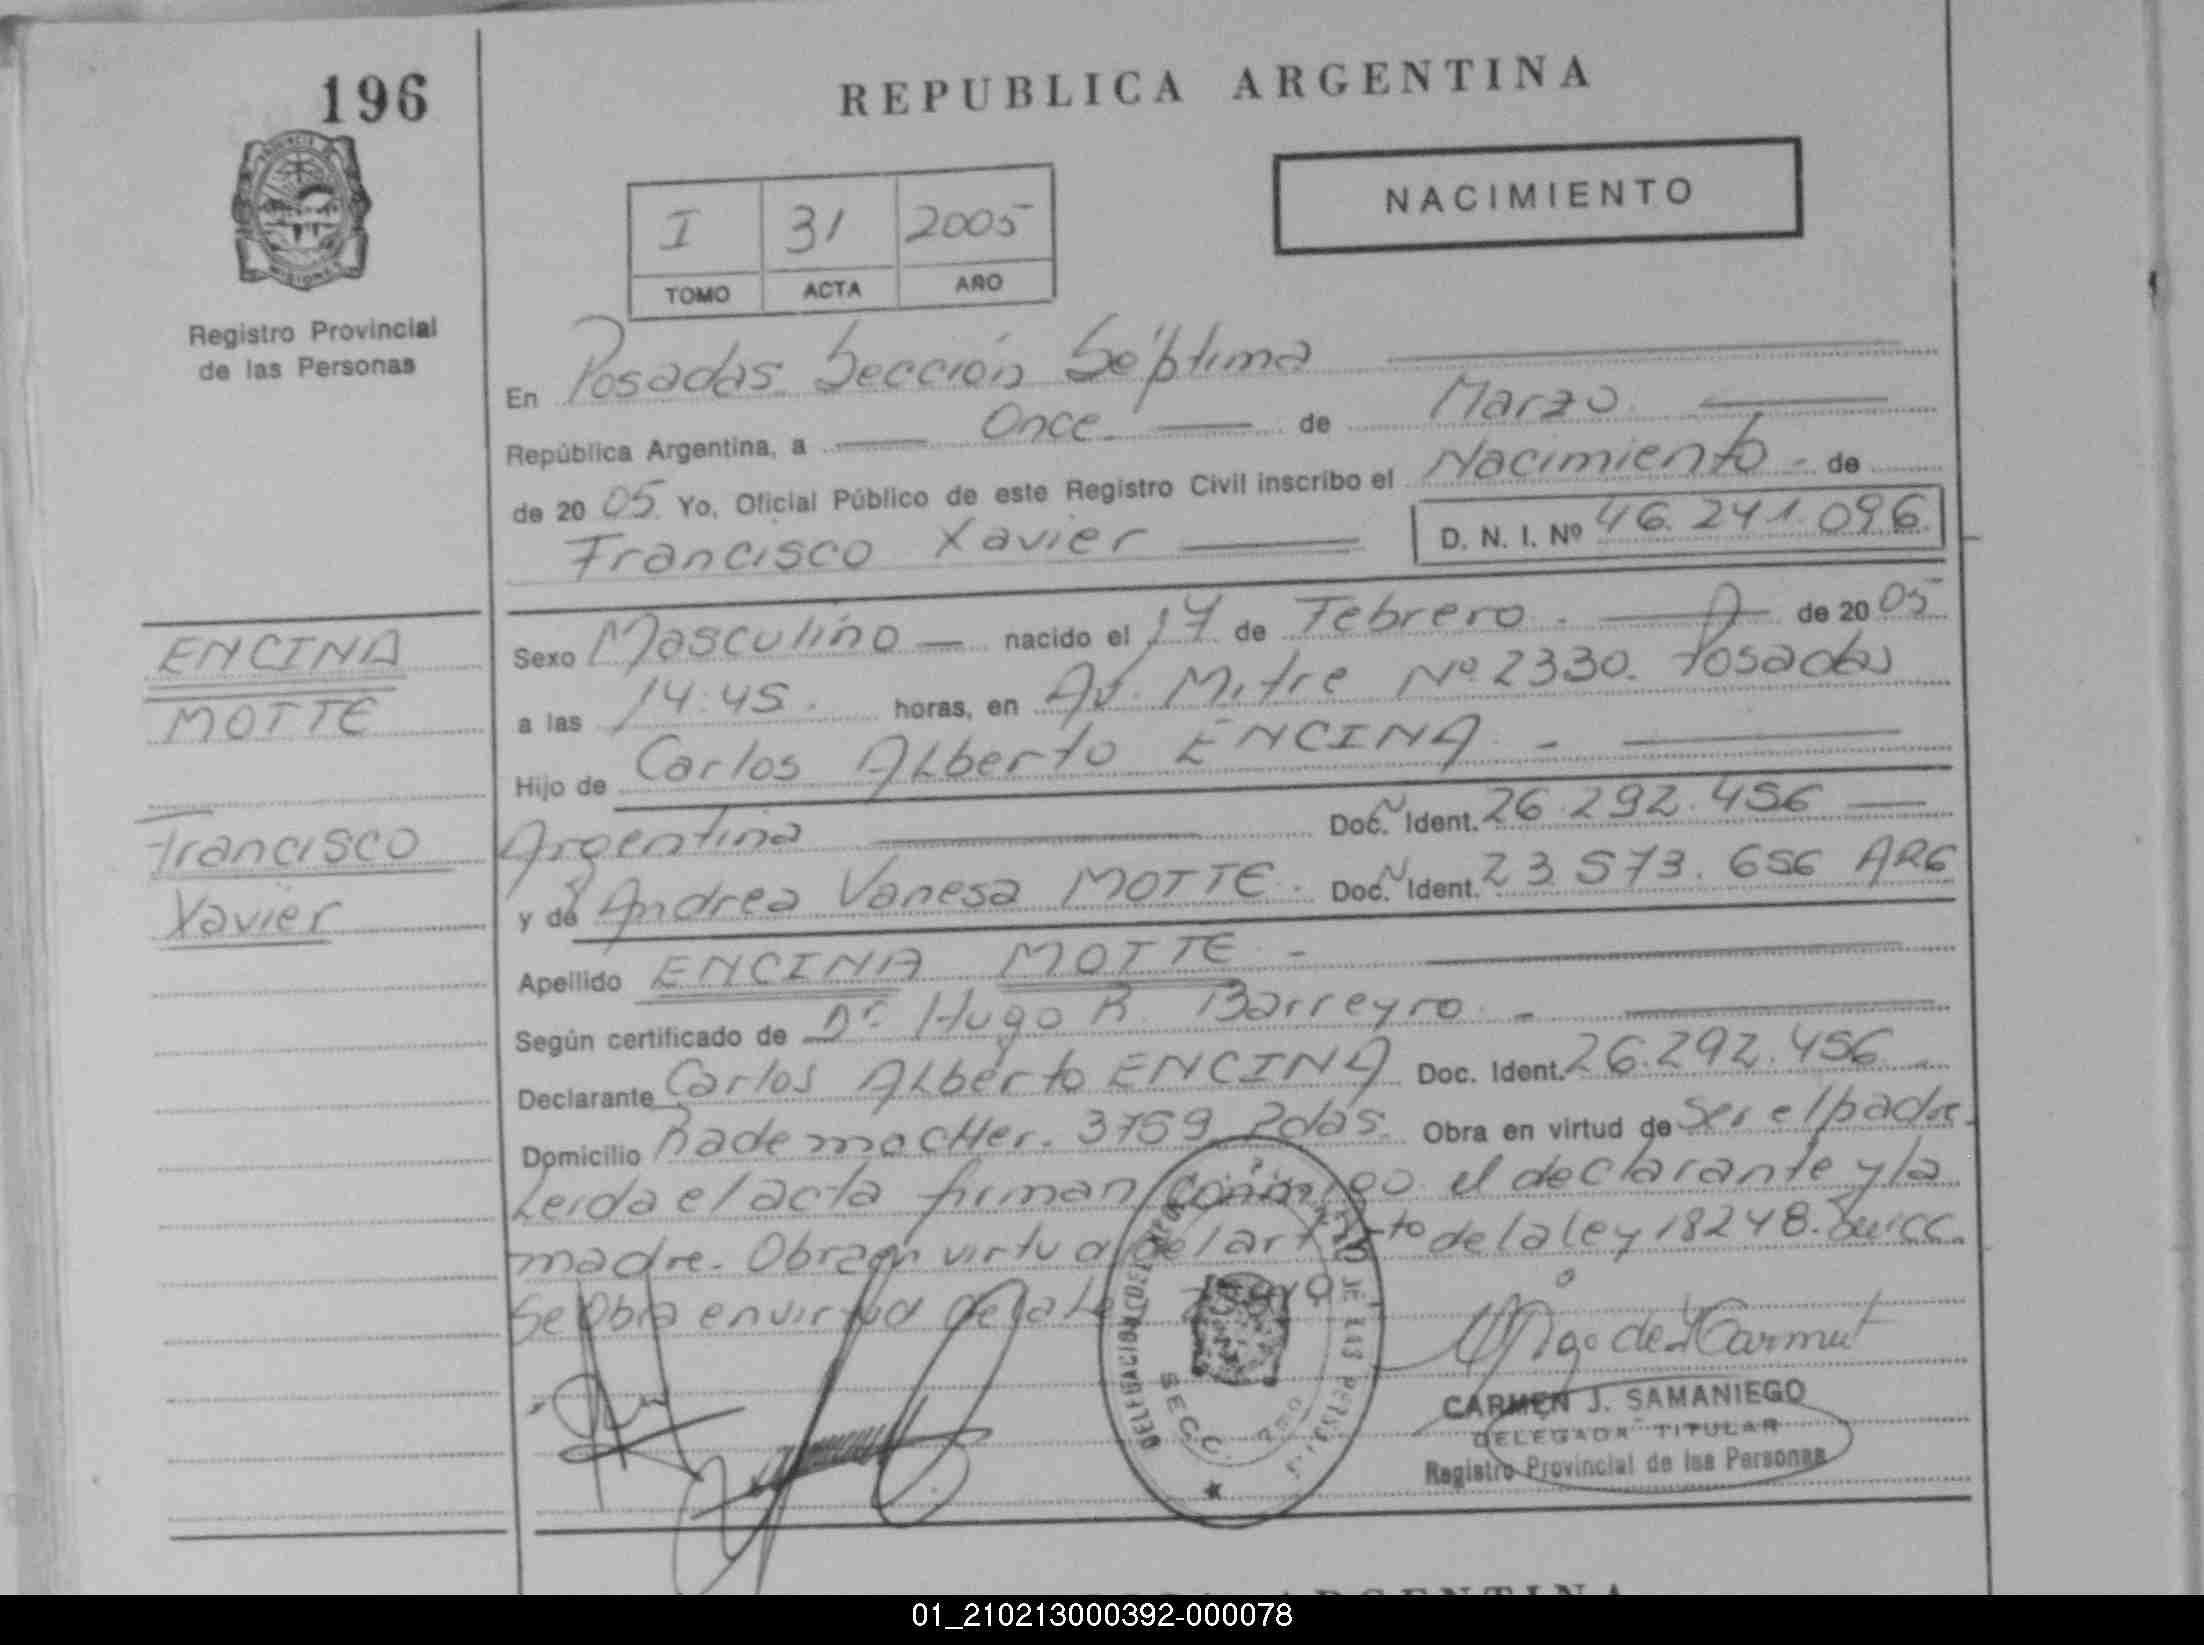 196
REPUBLICA ARGENTINA
NACIMIENTO
I 31 2005
TOMO ACTA AÑO
Registro Provincial
de las Personas
En Posadas Sección Séptima
República Argentina, a Once de Marzo
de 20 05 Yo, Oficial Público de este Registro Civil inscribo el Nacimiento - de
Francisco Xavier D. N. I. Nº 46.241.096
ENCINA
MOTTE
Francisco
Xavier
Sexo Masculino nacido el 17 de Febrero. de 20 05
a las 14.45. horas, en Av. Mitre Nº 2330. Posadas
Hijo de Carlos ALberto ENCINA -
Argentina Doc. Ident. 26.292.456
y de Andrea Vanesa MOTTE. Doc. Ident. 23.573.656 ARG
Apellido ENCINA MOTTE -
Según certificado de Dr. Hugo R. Barreyro -
Declarante Carlos ALberto ENCINA Doc. Ident. 26.292.456
Domicilio Rademacher. 3759 Pdas. Obra en virtud de ser el padre.
Leida el acta firman conmigo el declarante y la
madre. Obra en virtud del art de la ley 18248.
Se Obra en virtud de la
DELEGACION
SECC.
DE LAS PERSONAS
CARMEN J. SAMANIEGO
DELEGADA TITULAR
Registro Provincial de las Personas
01_210213000392-000078